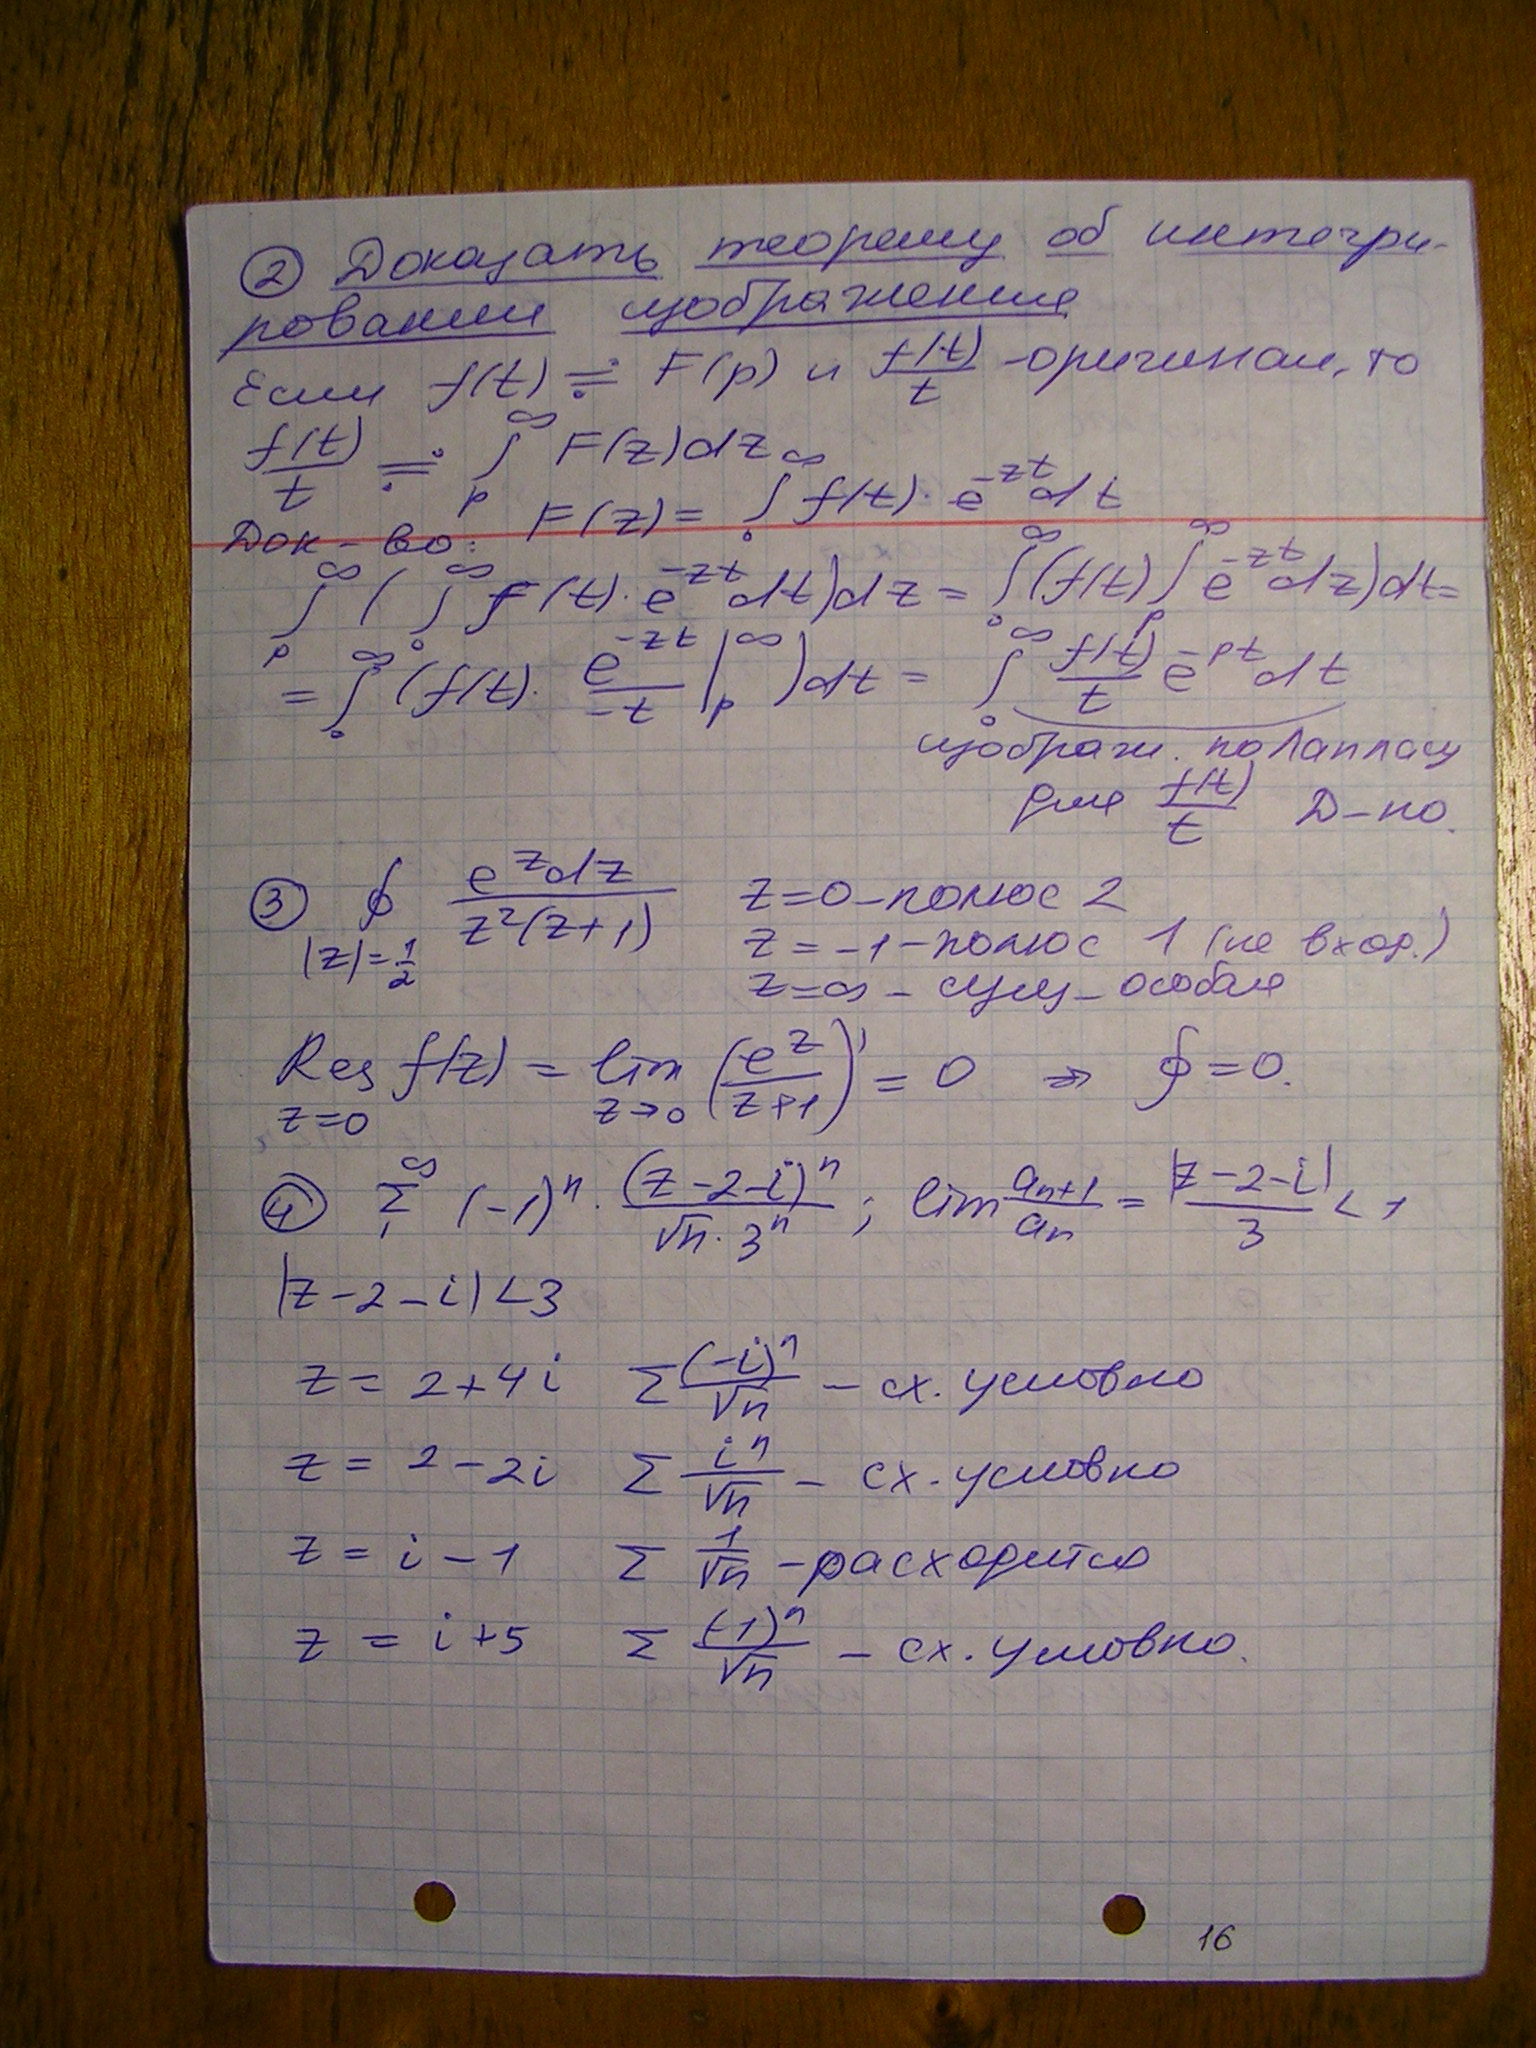 ② Доказать теорему об интегри-
ровании изображения
Если f(t) ≓ F(p) и f(t)/t - оригинал, то
f(t)/t ≓ ∫_p^∞ F(z)dz
Док-во: F(z) = ∫_0^∞ f(t)·e^{-zt}dt
∫_p^∞ (∫_0^∞ f(t)·e^{-zt}dt)dz = ∫_0^∞ (f(t) ∫_p^∞ e^{-zt}dz)dt =
= ∫_0^∞ (f(t)· e^{-zt}/-t |_p^∞ )dt = ∫_0^∞ f(t)/t e^{-pt}dt
изображ. по Лапласу
для f(t)/t Д-но.
③ ∮_{|z|=1/2} e^z dz / z²(z+1) z=0 – полюс 2
z = -1 – полюс 1 (не вход.)
z=∞ – сущ – особая
Res_{z=0} f(z) = lim_{z→0} (e^z/(z+1))' = 0 ⇒ ∮ = 0.
④ Σ_1^∞ (-1)^n · (z-2-i)^n / √n·3^n ; lim a_{n+1}/a_n = |z-2-i|/3 < 1
|z-2-i| <3
z = 2+4i Σ (-i)^n/√n – сх. условно
z = 2-2i Σ i^n/√n – сх. условно
z = i-1 Σ 1/√n – расходится
z = i+5 Σ (-1)^n/√n – сх. условно.
16